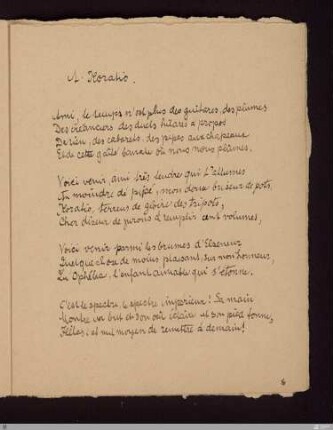 A Horatio.
Ami, le temps n'est plus des guitares, des plumes,
Des créanciers, des duels hilares à propos
De rien, des cabarets, des pipes aux chapeaux
Et de cette gaîté banale où nous nous plûmes.
Voici venir, ami très tendre qui t'allumes
Au moindre dé pipé, mon doux briseur de pots,
Horatio, terreur et gloire des tripots,
Cher diseur de jurons à remplir cent volumes,
Voici venir parmi les brumes d'Elseneur
Quelque chose de moins plaisant, sur mon honneur,
Qu'Ophélia, l'enfant aimable qui s'étonne.
C'est le spectre, le spectre impérieux! Sa main
Montre un but et son œil éclaire et son pied tonne,
Hélas! et nul moyen de remettre à demain!